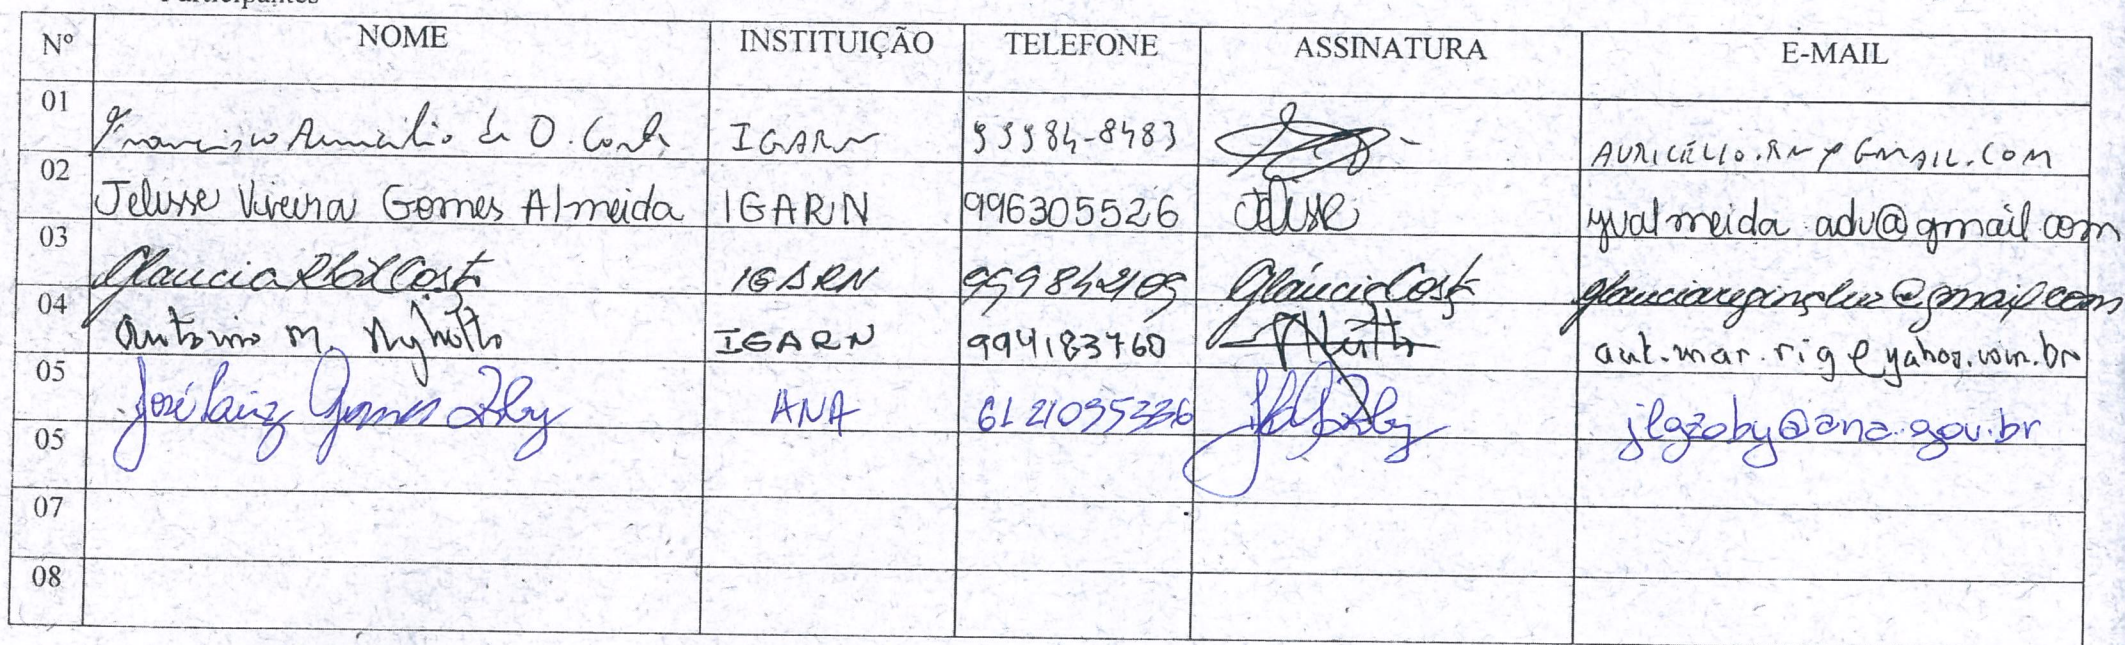 Participantes
Nº NOME INSTITUIÇÃO TELEFONE ASSINATURA E-MAIL
01 Francisco Auricélio de O. Costa IGARN 99984-8483 AURICÉLIO.RN@GMAIL.COM
02 Jelisse Vieira Gomes Almeida IGARN 996305526 Jelisse yvalmeida.adv@gmail.com
03 Glaucia Costa IGARN Gláucia Costa
04 Antonio M. IGARN 994183760 ant.mar.rig@yahoo.com.br
05 José Luiz Gomes Zoby ANA 61 21095236 jlgzoby@ana.gov.br
05
07
08